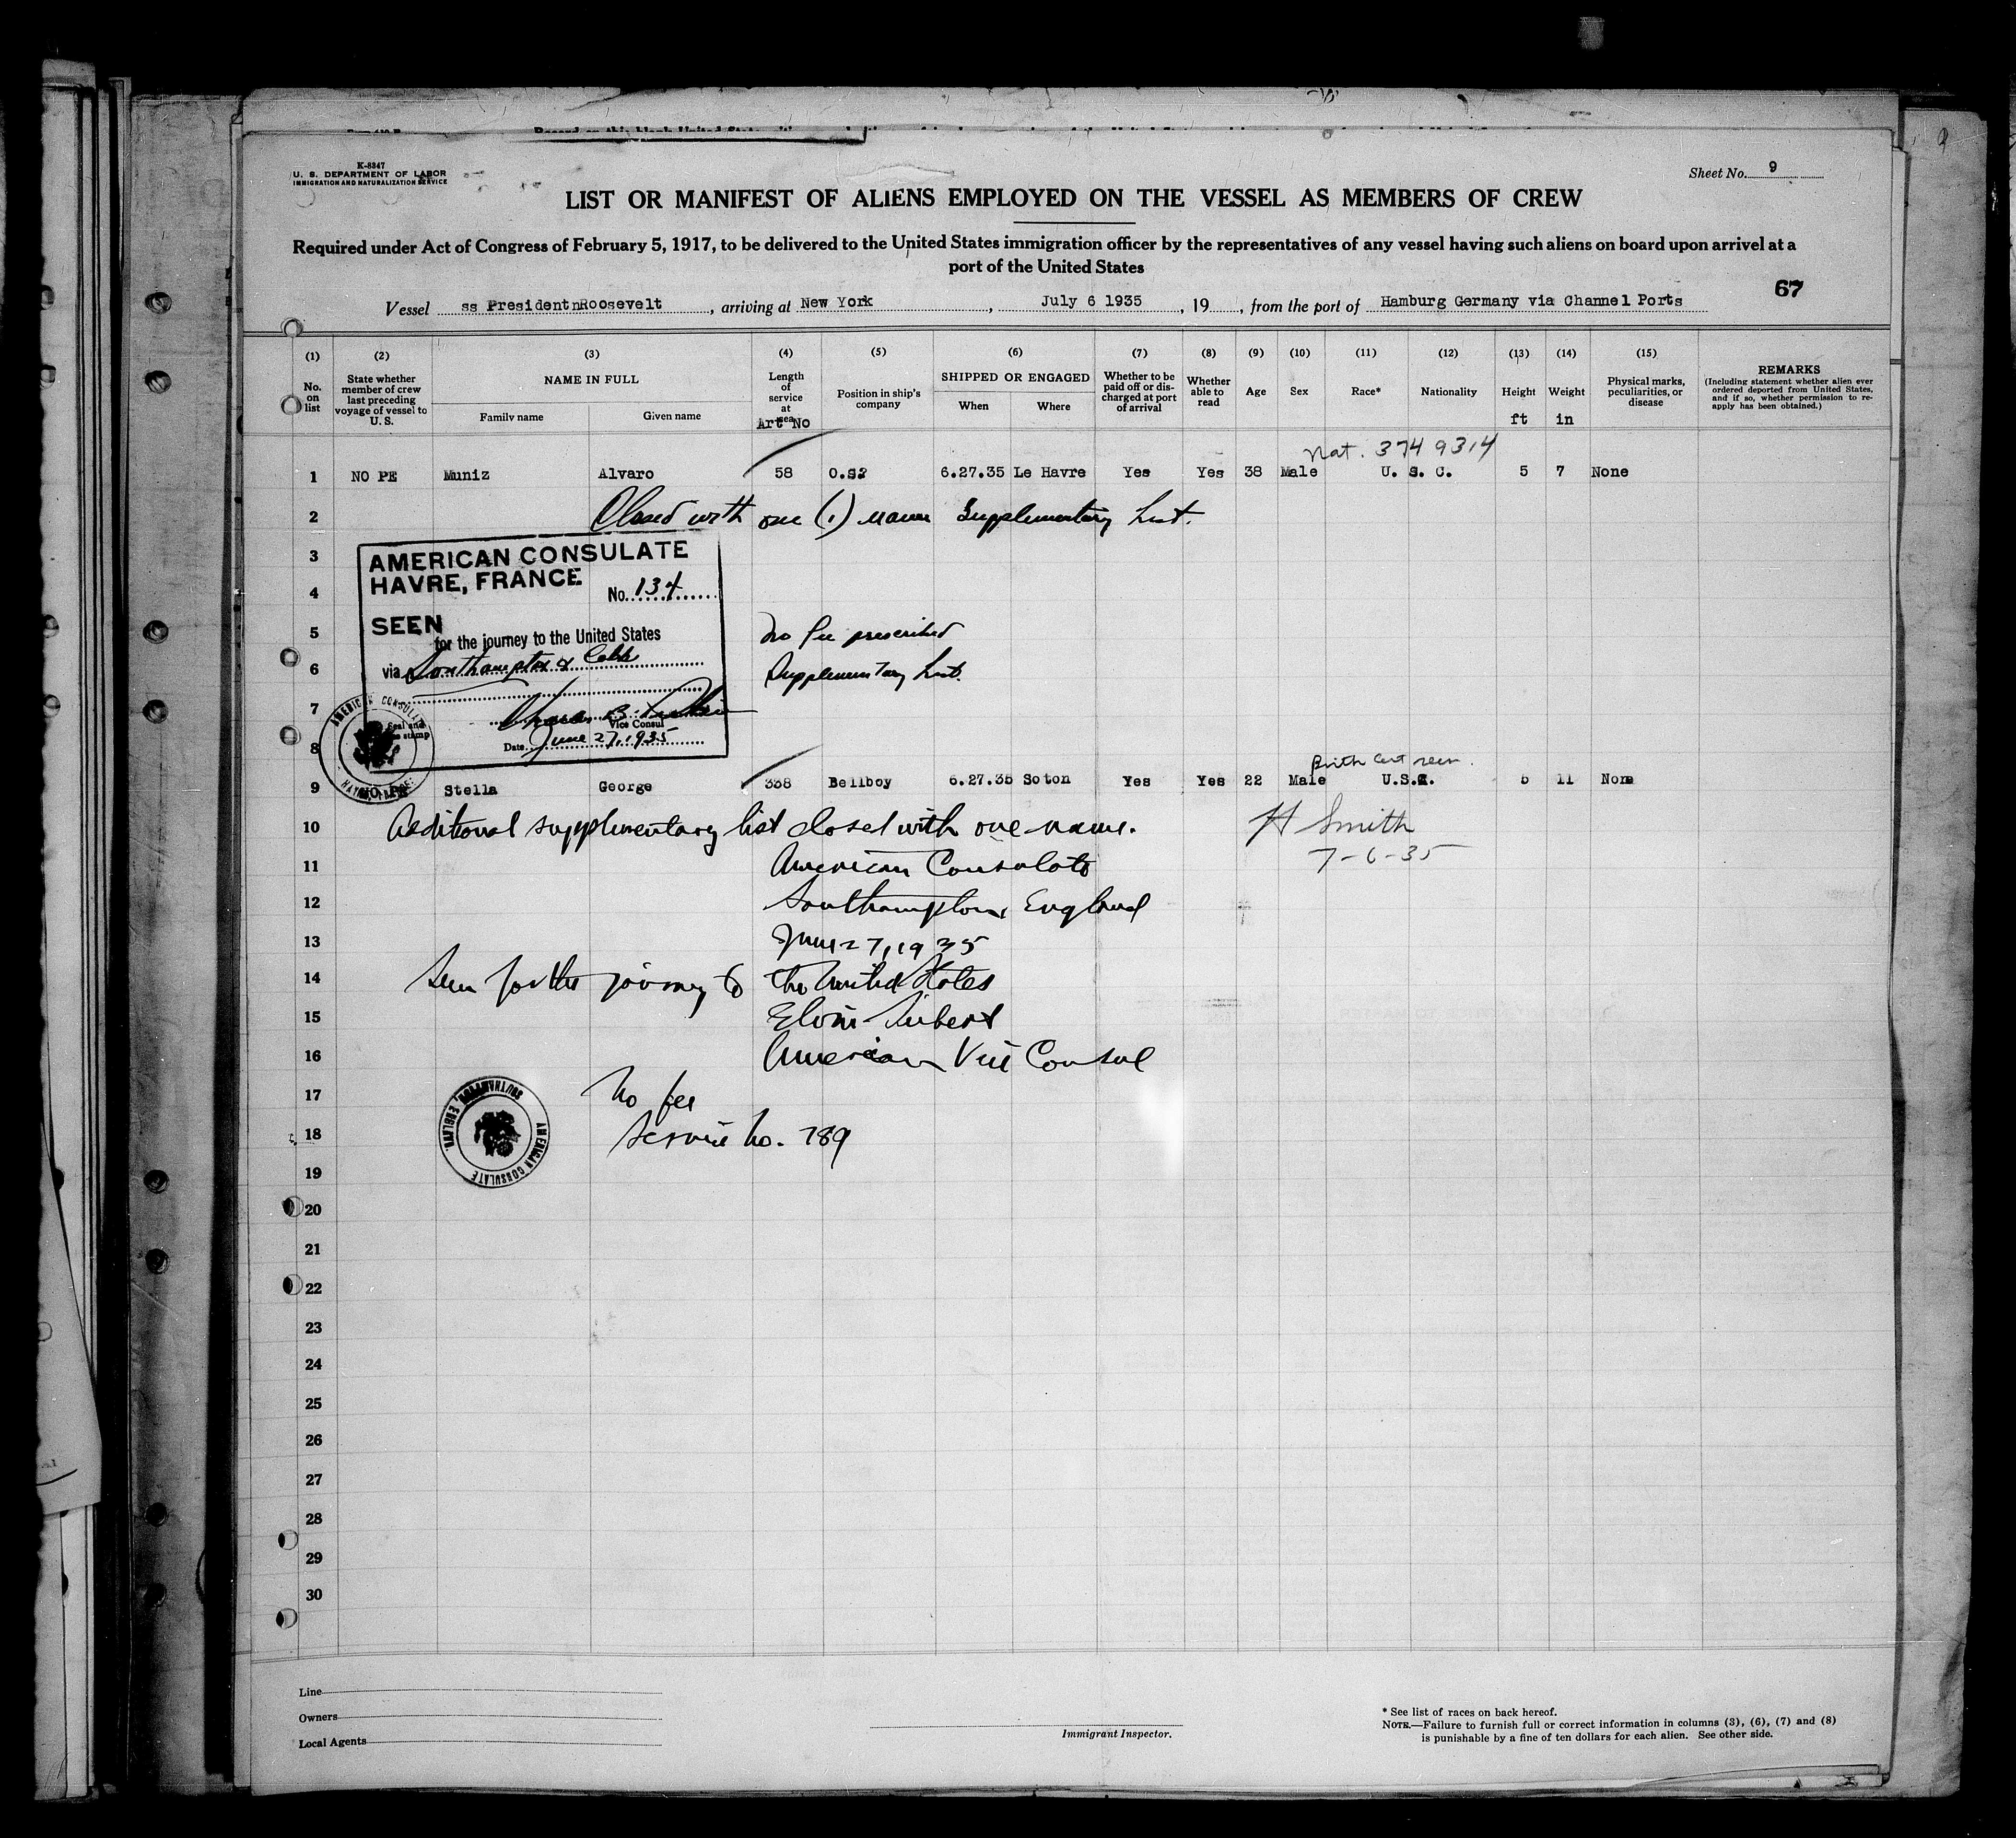 K-8347
U. S. DEPARTMENT OF LABOR
IMMIGRATION AND NATURALIZATION SERVICE
Sheet No. 9
LIST OR MANIFEST OF ALIENS EMPLOYED ON THE VESSEL AS MEMBERS OF CREW
Required under Act of Congress of February 5, 1917, to be delivered to the United States immigration officer by the representatives of any vessel having such aliens on board upon arrival at a
port of the United States
67
Vessel ss PresidentnRoosevelt, arriving at New York, July 6 1935, 19, from the port of Hamburg Germany via Channel Ports
(1) (2) (3) (4) (5) (6) (7) (8) (9) (10) (11) (12) (13) (14) (15)
No. on list
State whether member of crew last preceding voyage of vessel to U. S.
NAME IN FULL
Family name Given name
Length of service at sea
Art No
Position in ship's company
SHIPPED OR ENGAGED
When Where
Whether to be paid off or discharged at port of arrival
Whether able to read
Age
Sex
Race*
Nationality
Height
ft
Weight
in
Physical marks, peculiarities, or disease
REMARKS
(Including statement whether alien ever ordered deported from United States, and if so, whether permission to reapply has been obtained.)
Nat. 3749314
1 NO PE Muniz Alvaro 58 O.S2 6.27.35 Le Havre Yes Yes 38 Male U. S. C. 5 7 None
2 Closed with one (1) name Supplementary List.
3
AMERICAN CONSULATE
HAVRE, FRANCE
4
No. 134
SEEN
for the journey to the United States
5 No fee prescribed
via Southampton & Cobh
6 Supplementary List.
7
Vice Consul
Date June 27, 1935
8
Seal and
AMERICAN CONSULATE
Birth Cert seen.
9 Stella George 338 Bellboy 6.27.35 Soton Yes Yes 22 Male U.S.C. 5 11 None
10 Additional supplimentary list closed with one name.
H Smith
7-6-35
11 American Consulate
12 Southampton, England
13 June 27, 1935
14 Seen for the journey to the United States
15 Siebert
16 American Vice Consul
17 No fee
18 Service No. 789
AMERICAN CONSULATE SOUTHAMPTON, ENGLAND.
19
20
21
22
23
24
25
26
27
28
29
30
Line
Owners
Local Agents
Immigrant Inspector.
* See list of races on back hereof.
NOTE.—Failure to furnish full or correct information in columns (3), (6), (7) and (8)
is punishable by a fine of ten dollars for each alien. See other side.